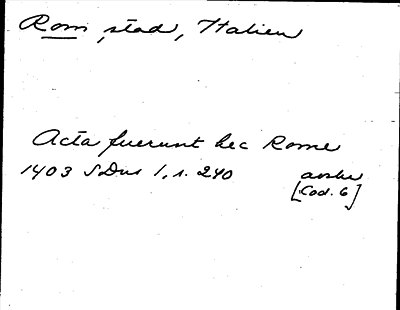 Rom, stad, Italien
Acta fuerunt hec Rome
1403 SDns 1, s. 240 avskr
[Cod. 6]